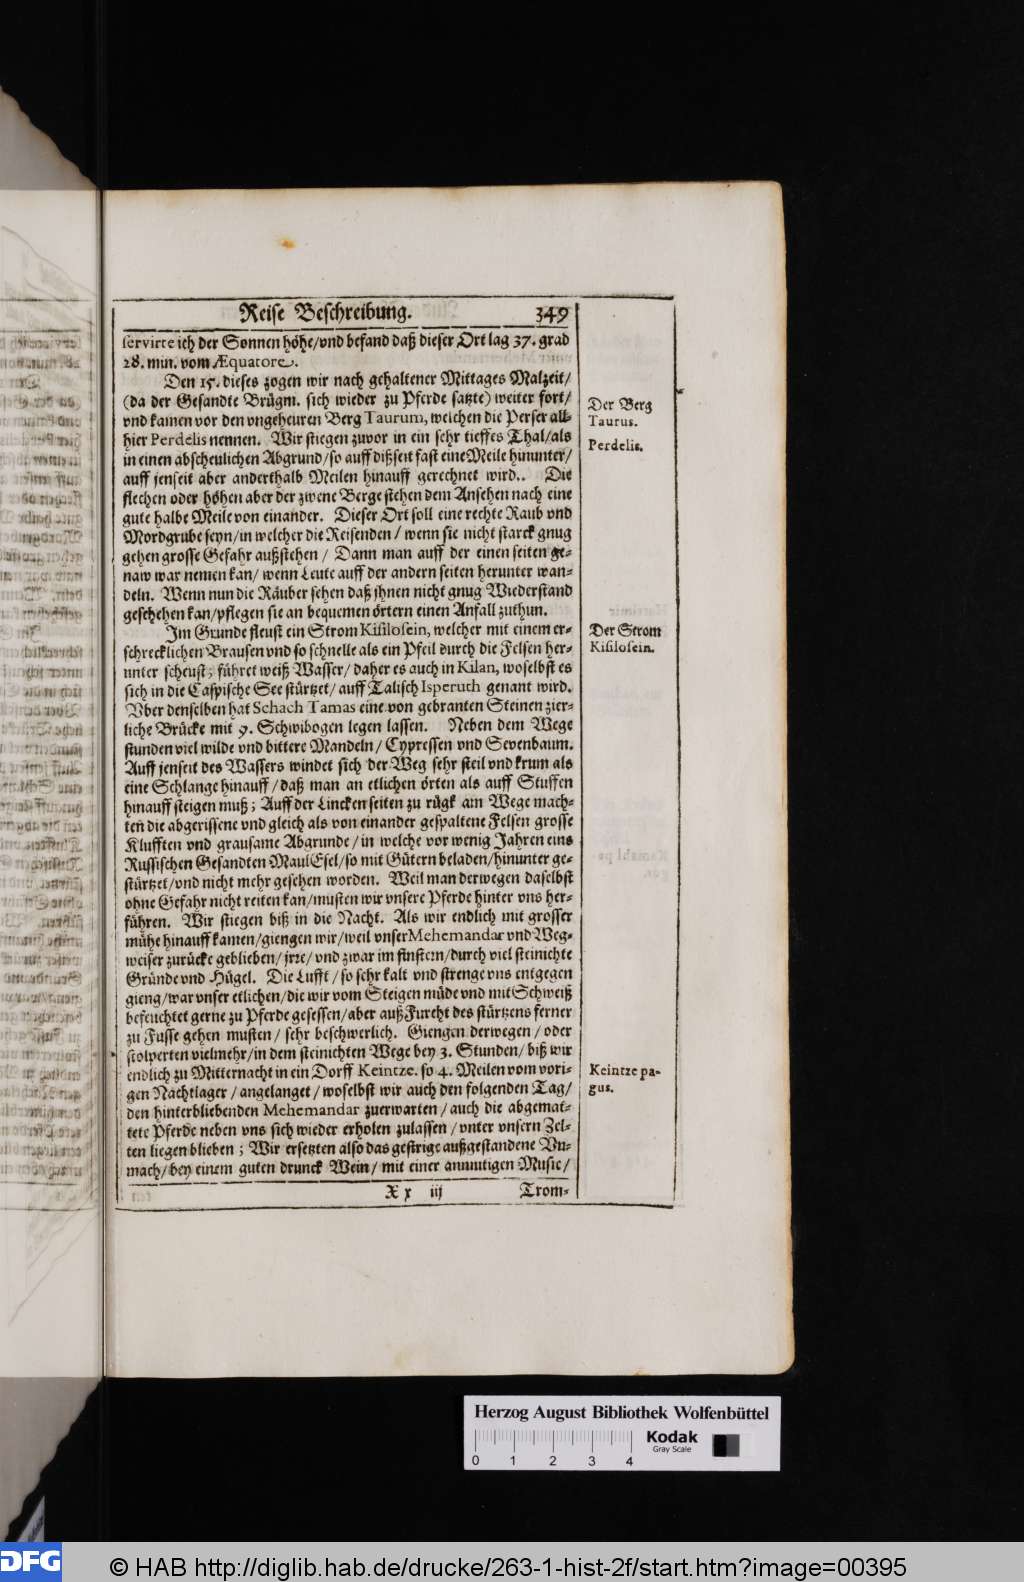 Reise Beschreibung. 349
servirte ich der Sonnen höhe/vnd befand daß dieser Ort lag 37. grad
28. min. vom Æquatore.
Den 15. dieses zogen wir nach gehaltener Mittages Malzeit/
(da der Gesandte Brügm. sich wieder zu Pferde satzte) weiter fort/
vnd kamen vor den vngeheuren Berg Taurum, welchen die Perser all-
hier Perdelis nennen. Wir stiegen zuvor in ein sehr tieffes Thal/als
in einen abscheulichen Abgrund/so auff dißseit fast eine Meile hinunter/
auff jenseit aber anderthalb Meilen hinauff gerechnet wird.. Die
flechen oder höhen aber der zwene Berge stehen dem Ansehen nach eine
gute halbe Meile von einander. Dieser Ort soll eine rechte Raub vnd
Mordgrube seyn/in welcher die Reisenden/ wenn sie nicht starck gnug
gehen grosse Gefahr außstehen/ Dann man auff der einen seiten ge-
naw war nemen kan/ wenn Leute auff der andern seiten herunter wan-
deln. Wenn nun die Räuber sehen daß jhnen nicht gnug Wiederstand
geschehen kan/pflegen sie an bequemen örtern einen Anfall zuthun.
Jm Grunde fleust ein Strom Kisilosein, welcher mit einem er-
schrecklichen Brausen vnd so schnelle als ein Pfeil durch die Felsen her-
unter scheust; führet weiß Wasser/ daher es auch in Kilan, woselbst es
sich in die Caspische See stürtzet/ auff Talisch Isperuth genant wird.
Vber denselben hat Schach Tamas eine von gebranten Steinen zier-
liche Brücke mit 9. Schwibogen legen lassen. Neben dem Wege
stunden viel wilde vnd bittere Mandeln/ Cypressen vnd Sevenbaum.
Auff jenseit des Wassers windet sich der Weg sehr steil vnd krum als
eine Schlange hinauff/ daß man an etlichen örten als auff Stuffen
hinauff steigen muß; Auff der Lincken seiten zu rügk am Wege mach-
ten die abgerissene vnd gleich als von einander gespaltene Felsen grosse
Klufften vnd grausame Abgrunde/ in welche vor wenig Jahren eins
Russischen Gesandten MaulEsel/so mit Gütern beladen/hinunter ge-
stürtzet/vnd nicht mehr gesehen worden. Weil man derwegen daselbst
ohne Gefahr nicht reiten kan/musten wir vnsere Pferde hinter vns her-
führen. Wir stiegen biß in die Nacht. Als wir endlich mit grosser
mühe hinauff kamen/giengen wir/weil vnser Mehemandar vnd Weg-
weiser zurücke geblieben/ jrre/ vnd zwar im finstern/durch viel steinichte
Gründe vnd Hügel. Die Lufft/ so sehr kalt vnd strenge vns entgegen
gieng/war vnser etlichen/die wir vom Steigen müde vnd mit Schweiß
befeuchtet gerne zu Pferde gesessen/aber auß Furcht des stürtzens ferner
zu Fusse gehen musten/ sehr beschwerlich. Giengen derwegen/ oder
stolperten vielmehr/in dem steinichten Wege bey 3. Stunden/ biß wir
endlich zu Mitternacht in ein Dorff Keintze. so 4. Meilen vom vori-
gen Nachtlager/ angelanget/ woselbst wir auch den folgenden Tag/
den hinterbliebenden Mehemandar zuerwarten/ auch die abgemat-
tete Pferde neben vns sich wieder erholen zulassen/ vnter vnsern Zel-
ten liegen blieben; Wir ersetzten also das gestrige außgestandene Vn-
mach/ bey einem guten drunck Wein/ mit einer anmutigen Music/
X x iij Trom-
Der Berg
Taurus.
Perdelis.
Der Strom
Kisilosein.
Keintze pa-
gus.
Herzog August Bibliothek Wolfenbüttel
Kodak
Gray Scale
0 1 2 3 4
DFG © HAB http://diglib.hab.de/drucke/263-1-hist-2f/start.htm?image=00395